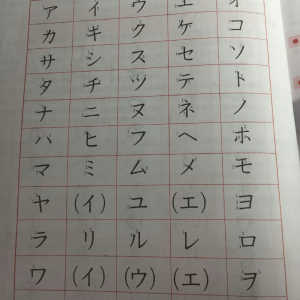 ア イ ウ エ オ
カ キ ク ケ コ
サ シ ス セ ソ
タ チ ツ テ ト
ナ ニ ヌ ネ ノ
ハ ヒ フ ヘ ホ
マ ミ ム メ モ
ヤ (イ) ユ (エ) ヨ
ラ リ ル レ ロ
ワ (イ) (ウ) (エ) ヲ